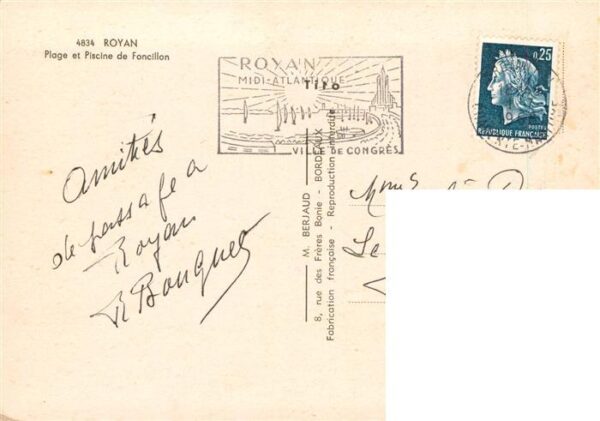 4834 ROYAN
Plage et Piscine de Foncillon
ROYAN
MIDI-ATLANTIQUE
Tito
VILLE DE CONGRÈS
0,25
POSTES
REPUBLIQUE FRANÇAISE
Amitiés
de passage a
Royan
R Bouquet
M. BERJAUD
8, rue des Frères Bonie - BORDEAUX
Fabrication française - Reproduction interdite
Le